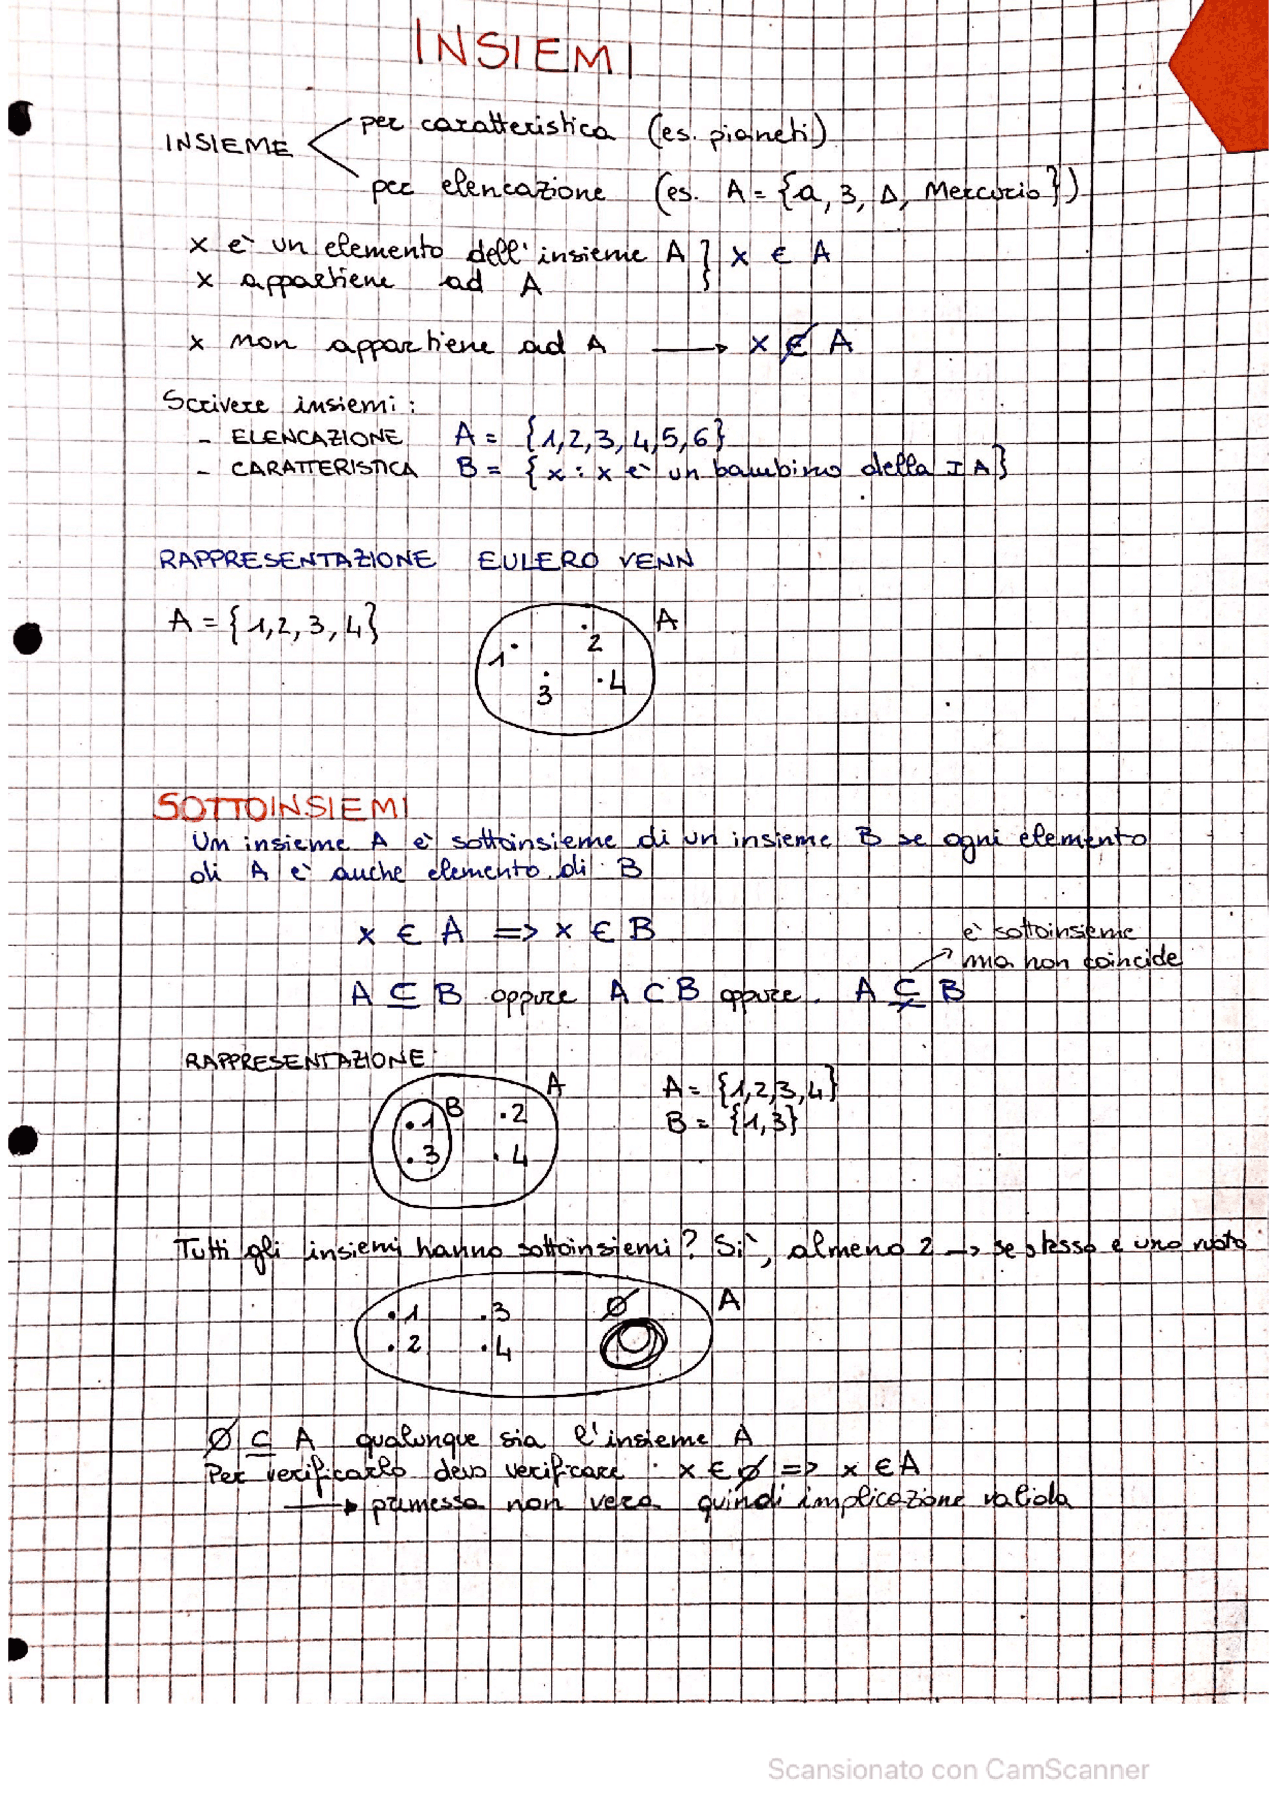 INSIEMI
INSIEME per caratteristica (es. pianeti)
per elencazione (es. A = {a, 3, Δ, Mercurio})
x è un elemento dell'insieme A } x ∈ A
x appartiene ad A
x non appartiene ad A → x ∉ A
Scrivere insiemi:
- ELENCAZIONE A = {1,2,3,4,5,6}
- CARATTERISTICA B = {x : x è un bambino della I A}
RAPPRESENTAZIONE EULERO VENN
A = {1,2,3,4}
A
1 2
3 4
SOTTOINSIEMI
Un insieme A è sottoinsieme di un insieme B se ogni elemento
di A è anche elemento di B
x ∈ A => x ∈ B
è sottoinsieme
ma non coincide
A ⊆ B oppure A ⊂ B oppure A ⊊ B
RAPPRESENTAZIONE:
A
B
1 2
3 4
A = {1,2,3,4}
B = {1,3}
Tutti gli insiemi hanno sottoinsiemi? Sì, almeno 2 → se stesso e uno vuoto
1 3 ∅ A
2 4
∅ ⊆ A qualunque sia l'insieme A
Per verificarlo devo verificare : x ∈ ∅ => x ∈ A
→ premessa non vera quindi implicazione valida
Scansionato con CamScanner